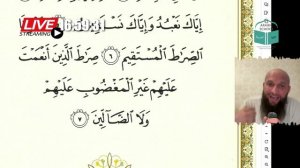 LIVE
STREAMING
إِيَّاكَ نَعْبُدُ وَإِيَّاكَ
الصِّرَاطَ الْمُسْتَقِيمَ ٦ صِرَاطَ الَّذِينَ أَنْعَمْتَ
عَلَيْهِمْ غَيْرِ الْمَغْضُوبِ عَلَيْهِمْ
وَلَا الضَّالِّينَ ٧